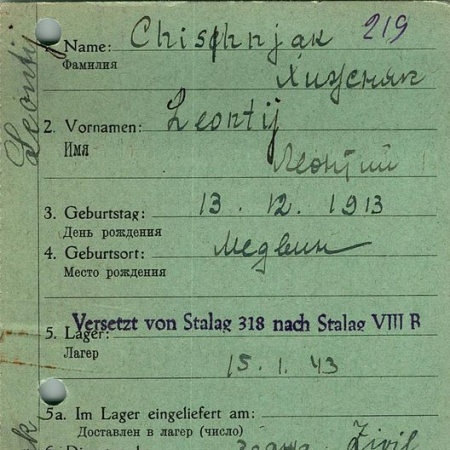 219
1. Name: Chischnjak
Фамилия
Хижсняк
2. Vornamen: Leontij
Имя
Леонтий
3. Geburtstag: 13. 12. 1913
День рождения
4. Geburtsort: Медвин
Место рождения
Versetzt von Stalag 318 nach Stalag VIII B
5. Lager:
Лагер
15. 1. 43
5a. Im Lager eingeliefert am:
Доставлен в лагер (число)
Zivil
Leontij